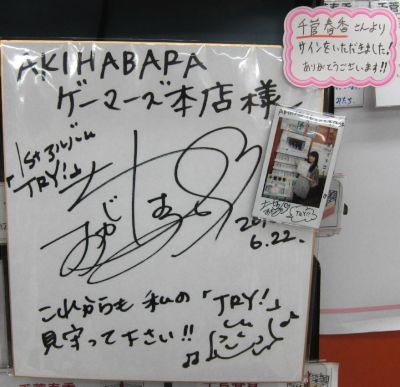 千菅春香さんより
サインをいただきました!
ありがとうございます!!
AKIHABARA
ゲーマーズ本店様
「1stアルバム
TRY!」
6.22.
これからも 私の「TRY!」
見守って下さい!!